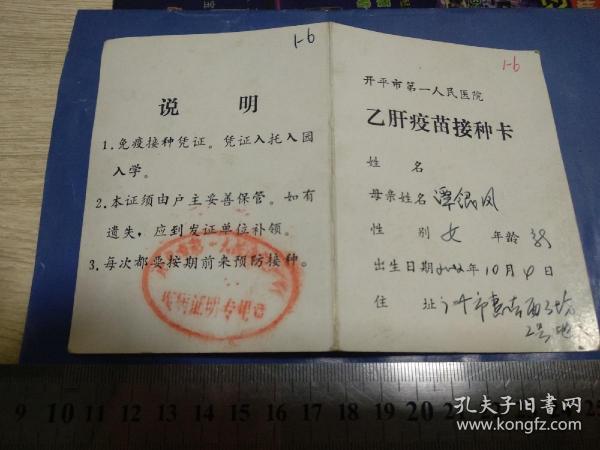 1-6
说 明
1.免疫接种凭证。凭证入托入园
入学。
2.本证须由户主妥善保管。如有
遗失,应到发证单位补领。
3.每次都要按期前来预防接种。
疾病证明专用章
1-6
开平市第一人民医院
乙肝疫苗接种卡
姓 名
母亲姓名 谭银凤
性 别 女 年龄
出生日期 年10月4日
住 址
9 10 11 12 13 14 15 16 17 18 19 20 21
孔夫子旧书网
www.kongfz.com